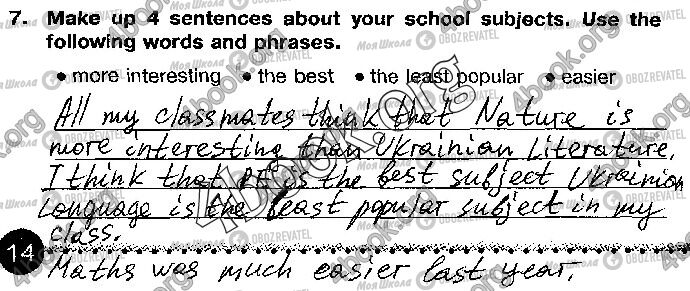 7. Make up 4 sentences about your school subjects. Use the
following words and phrases.
• more interesting • the best • the least popular • easier
All my classmates think that Nature is
more interesting than Ukrainian Literature.
I think that PE is the best subject Ukrainian
Language is the least popular subject in my
class.
14
Maths was much easier last year.
4book.org
Моя Школа OBOZREVATEL